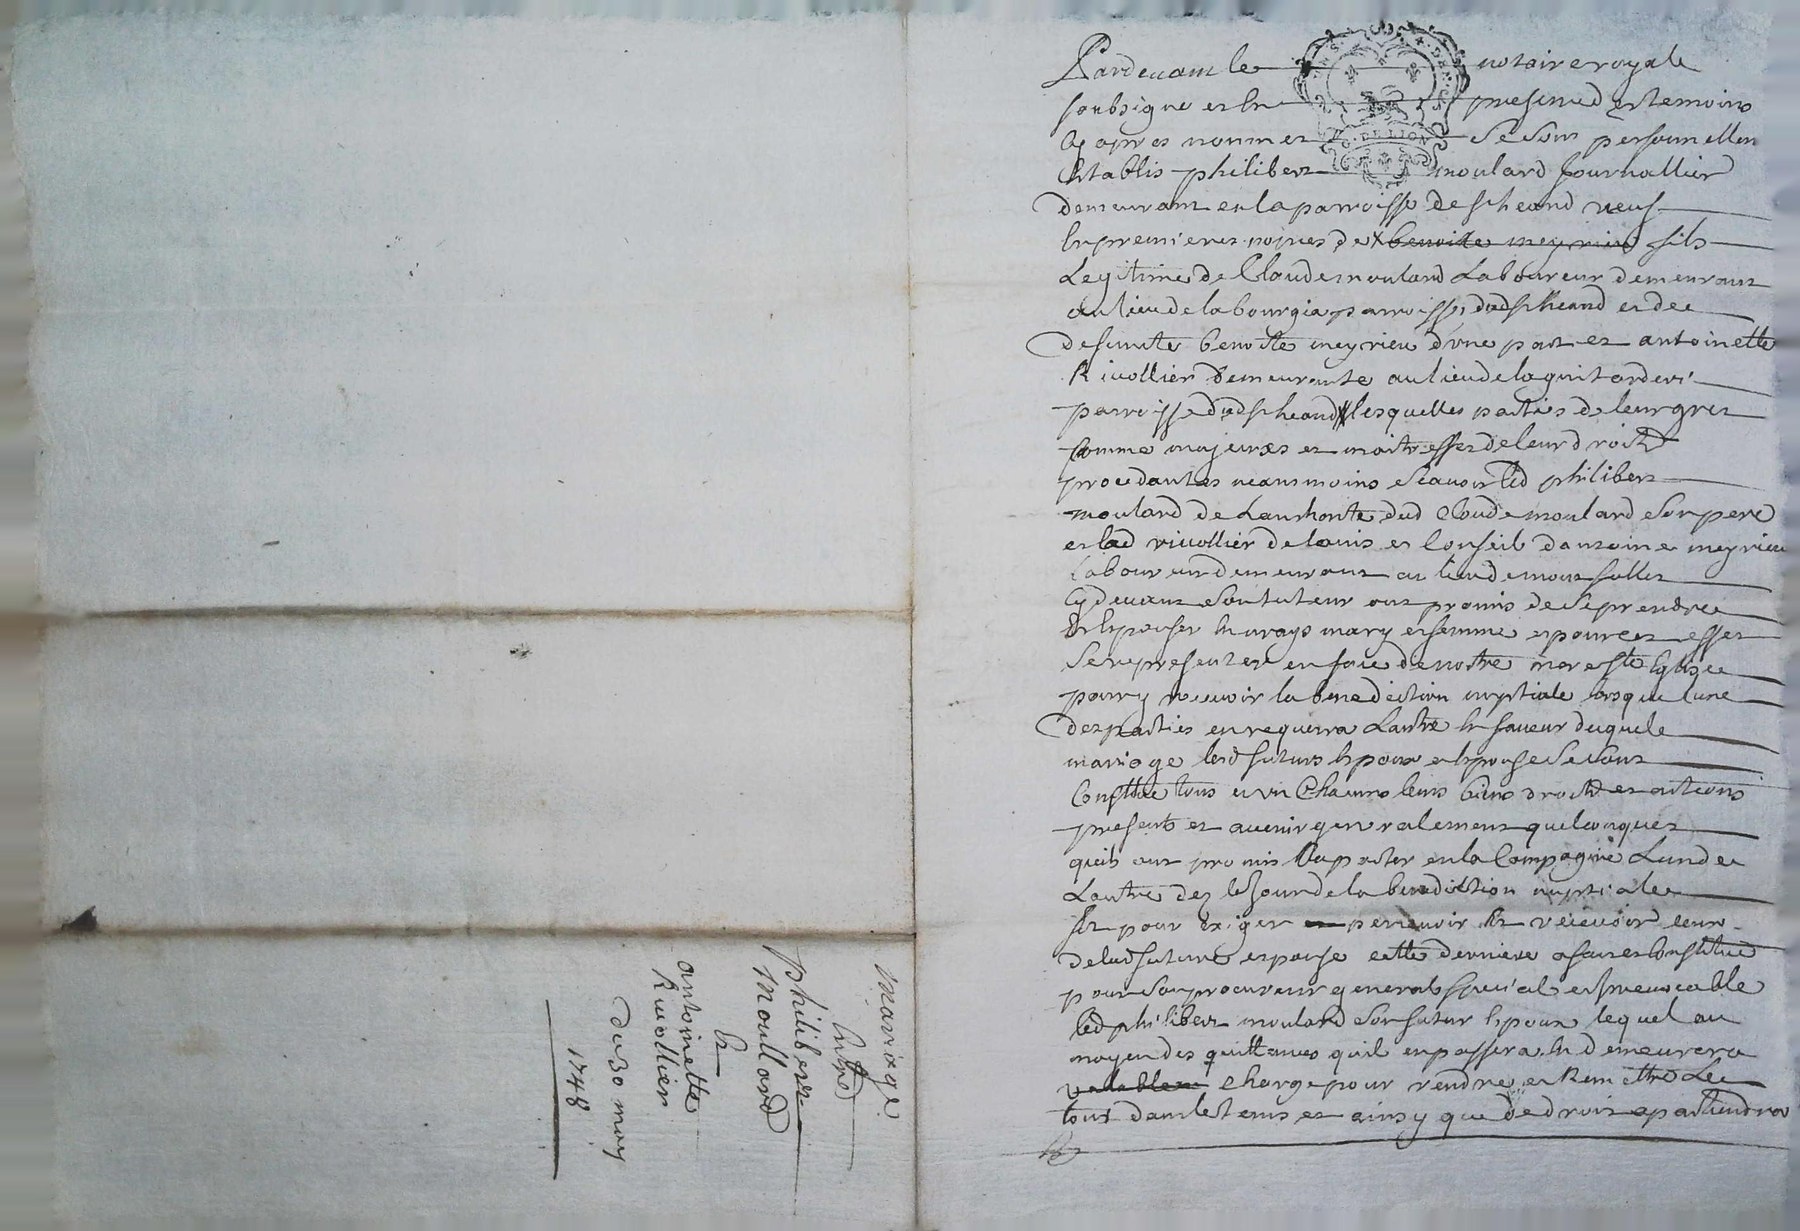 mariage
Entre
philibert
Moullard
Et
antoinette
Rivollier
du 30 may
1748
G. DE LION
Pardevant le notaire royale
soubsigné et en presence des temoins
cy apres nommes se sont personnellem
Etablis philibert moulard journallier
demeurant en la parroisse de st heand veuf
En premieres nopces de x benoite meyrieu fils
Legitime de Claude moulard Laboureur demeurant
au lieu de la bourgia parroisse dud st heand et de
defuncte benoite meyrieu d'une part et antoinette
Rivollier demeurante au lieu de la
parroisse dud st heand lesquelles parties de leur grez
Comme majeures et maitresses de leur droicts
procedantes neansmoins scavoir led philibert
moulard de Lauthorité dud Claude moulard son pere
et lad rivollier de lavis et Conseil dantoine meyrieu
Laboureur demeurant au lieu de
cy devant son tuteur ont promis de se prendre
Et Epouser En vrays mary et femme et pour cet effet
se representer en face de nostre mere ste Eglise
pour y recevoir la benediction nuptiale lorsque lune
des parties en requerra Lautre En faveur duquel
mariage lesd futurs Epoux et Epouse se sont
Constitué tous et un Chacuns leurs biens droicts et actions
present et avenir generalement quelconques
quils ont promis Raporter en la Compagnie Lun de
Lautre dez le Jour de la benediction nuptiale
Et pour Exiger percevoir Et recevoir ceux
de lad future espouse cette derniere a fait et Constitué
pour son procureur general special et Irrevocable
led philibert moulard son futur Epoux lequel au
moyen des quittances quil en passera En demeurera
valablem Charge pour rendre et Remettre Le
tout dans le tems et ainsy que de droit apartiendra